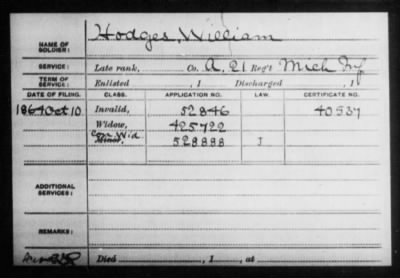 NAME OF SOLDIER: Hodges, William
SERVICE: Late rank, Co. A, 21 Reg't Mich Inf
TERM OF SERVICE: Enlisted , 1 Discharged , 1
DATE OF FILING. CLASS. APPLICATION NO. LAW. CERTIFICATE NO.
1864 Oct 10 Invalid, 52846 40537
Widow, 425722
Con Wid
Minor, 528888 J
ADDITIONAL SERVICES:
REMARKS:
Died , 1 , at